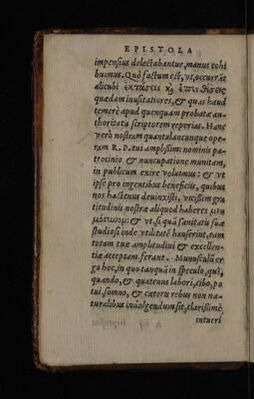 EPISTOLA
impensius delectabantur, manus cohi
buimus. Quo factum est, vt, occurrãt
alicubi ἐκτάσεις κ̀ 
quædam inusitatiores, & quas haud
temerè apud quenquam probatæ au-
thoritatis scriptorem reperias. Hanc
verò nostram quantulancunque ope-
ram R. P. tui amplißimi nominis pa-
trocinio & nuncupatione munitam,
in publicum exire volumus: & vt
ipse pro ingentibus beneficijs, quibus
nos hactenus deuinxisti, vicißim gra
titudinis nostræ aliquod haberes
& vt, si quã sanitatis suæ
studiosi inde vtilitatẽ hauserint, eam
totam tuæ amplitudini & excellen-
tiæ acceptam ferant. Munusculũ er
go hoc, in quo tanquã in speculo, qui,
quando, & quatenus labori, cibo, po
tui, somno, & cæteris rebus non na-
turalibus indulgendum sit, clarißimè
intueri